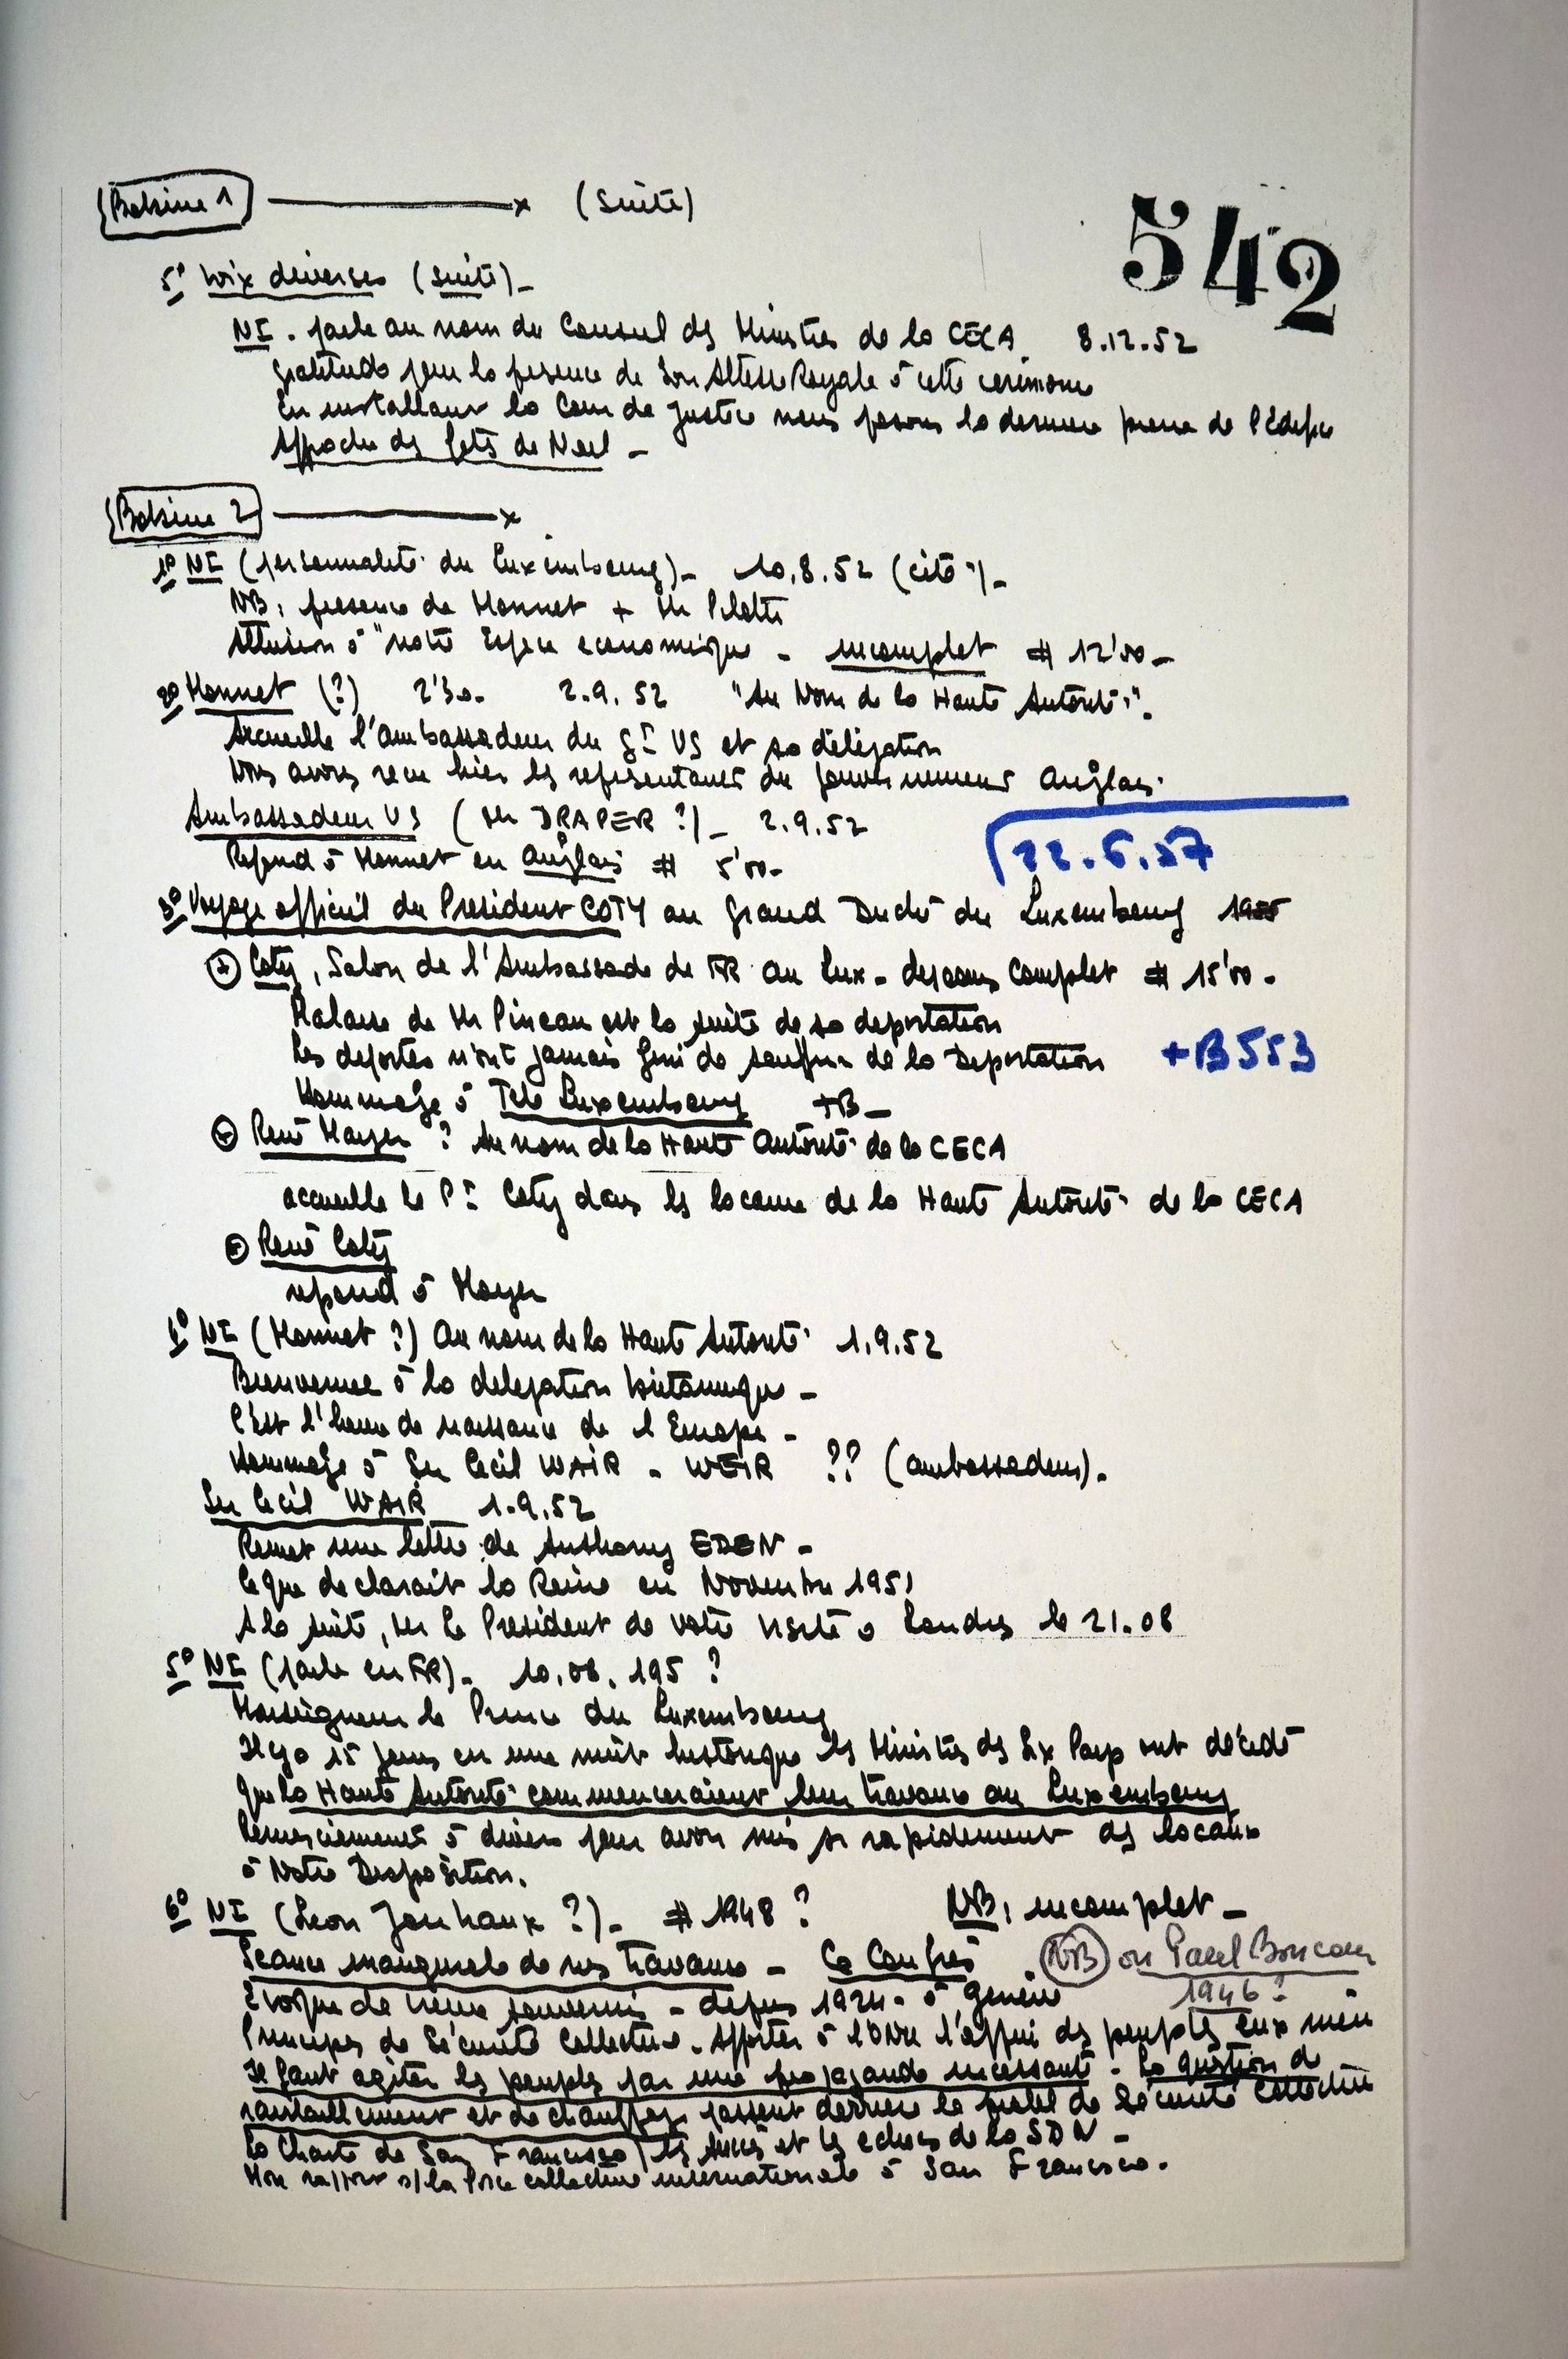 Bobine 1 ———x (suite)
542
5° Voix diverses (suite)_
NI. parle au nom du Conseil des Ministres de la CECA. 8.12.52
gratitude pour la presence de Son Altesse Royale à cette ceremonie
En installant la Cour de Justice nous posons la derniere pierre de l'édifice
Approche des fetes de Noel _
Bobine 2 ———x
1° NI (personnalité du Luxembourg)_ 10.8.52 (cité)_
NB: presence de Monnet + Mr Pilette
Allusion à "notre economique _ incomplet # 12'00_
2° Monnet (?) 2'30. 2.9.52 "Au Nom de la Haute Autorité".
Accueille l'ambassadeur du Gt US et sa délégation
Nous avons recu hier les representants du gouvernement Anglais.
Ambassadeur US (Mr DRAPER ?)_ 2.9.52
Repond à Monnet en Anglais # 5'00_
22.6.57
3° Voyage officiel du President COTY au Grand Duché du Luxembourg 1955
Coty, Salon de l'Ambassade de FR au Lux _ discours complet # 15'00 _
Malaise de Mr Pineau est la suite de sa deportation
Les deportes n'ont jamais fini de souffrir de la Deportation +B553
Hommage à Tele Luxembourg +B_
René Mayer ? Au nom de la Haute Autorité de la CECA
accueille le Pt Coty dans les locaux de la Haute Autorité de la CECA
René Coty
repond à Mayer
4° NI (Monnet ?) Au nom de la Haute Autorité 1.9.52
Bienvenue à la delegation britannique _
C'est l'heure de naissance de l'Europe _
Hommage à Sir Cecil WAIR _ WEIR ?? (ambassadeur).
Sir Cecil WAIR 1.9.52
Remet une lettre de Anthony EDEN _
Ce que declarait la Reine en Novembre 1951
A la suite, Mr le President de votre visite à Londres le 21.08
5° NI (parle en FR)_ 10.08.195 ?
Monseigneur le Prince du Luxembourg
Il y a 15 jours en une nuit historique les Ministres des Six Pays ont décidé
que la Haute Autorité commenceraient leur travaux au Luxembourg
Remerciements à divers pour avoir mis si rapidement des locaux
à Notre Disposition.
6° NI (Leon Jouhaux ?)_ # 1948 ? NB: incomplet _
Seance inaugurale de nos travaux _ Ce Congrès (NB) ou Paul Boncour
1946 ?
Evoque de vieux souvenirs _ depuis 1924 _ à Genève
Principes de Sécurité Collective. Apporter à l'ONU l'appui des peuples eux mêm
Il faut agiter les peuples par une propagande incessante. La question de
ravitaillement et de chauffage passent derriere le probl de Sécurité Collective
La Charte de San Francisco / les succes et les echecs de la SDN _
Mon rapport s/ la collective internationale à San Francisco.